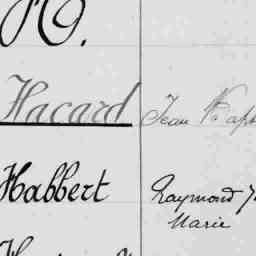 H.
Hacard Jean Bap
Habbert Raymond J
Marie